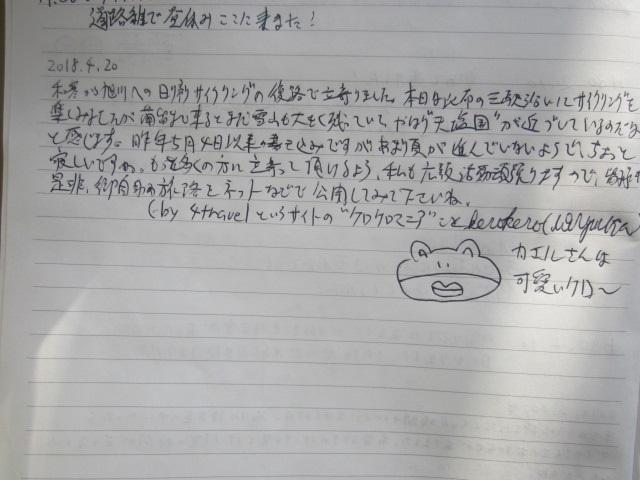 道路維で昼休みここに来ました!
2018.4.20
和寒から旭川への日帰りサイクリングの復路で立寄りました。本日は比布の三 沿いにサイクリングを
楽しみましたが 蘭留まで来るとまだ雪山も大きく残っていて、やはり"天塩国"が近づいているのだな
と感じます。昨年5月4日以来の書き込みですがあまり頁が進んでいないようで、ちょっと
寂しいですね。もっと多くの方に立寄って頂けるよう、私も広報活動頑張りますので、皆様も
是非、御自身の旅行記をネットなどで公開してみて下さいね。
(by 4travelというサイトの"ケロケロマニア"こと kerokero
カエルさんは
可愛いケロ〜